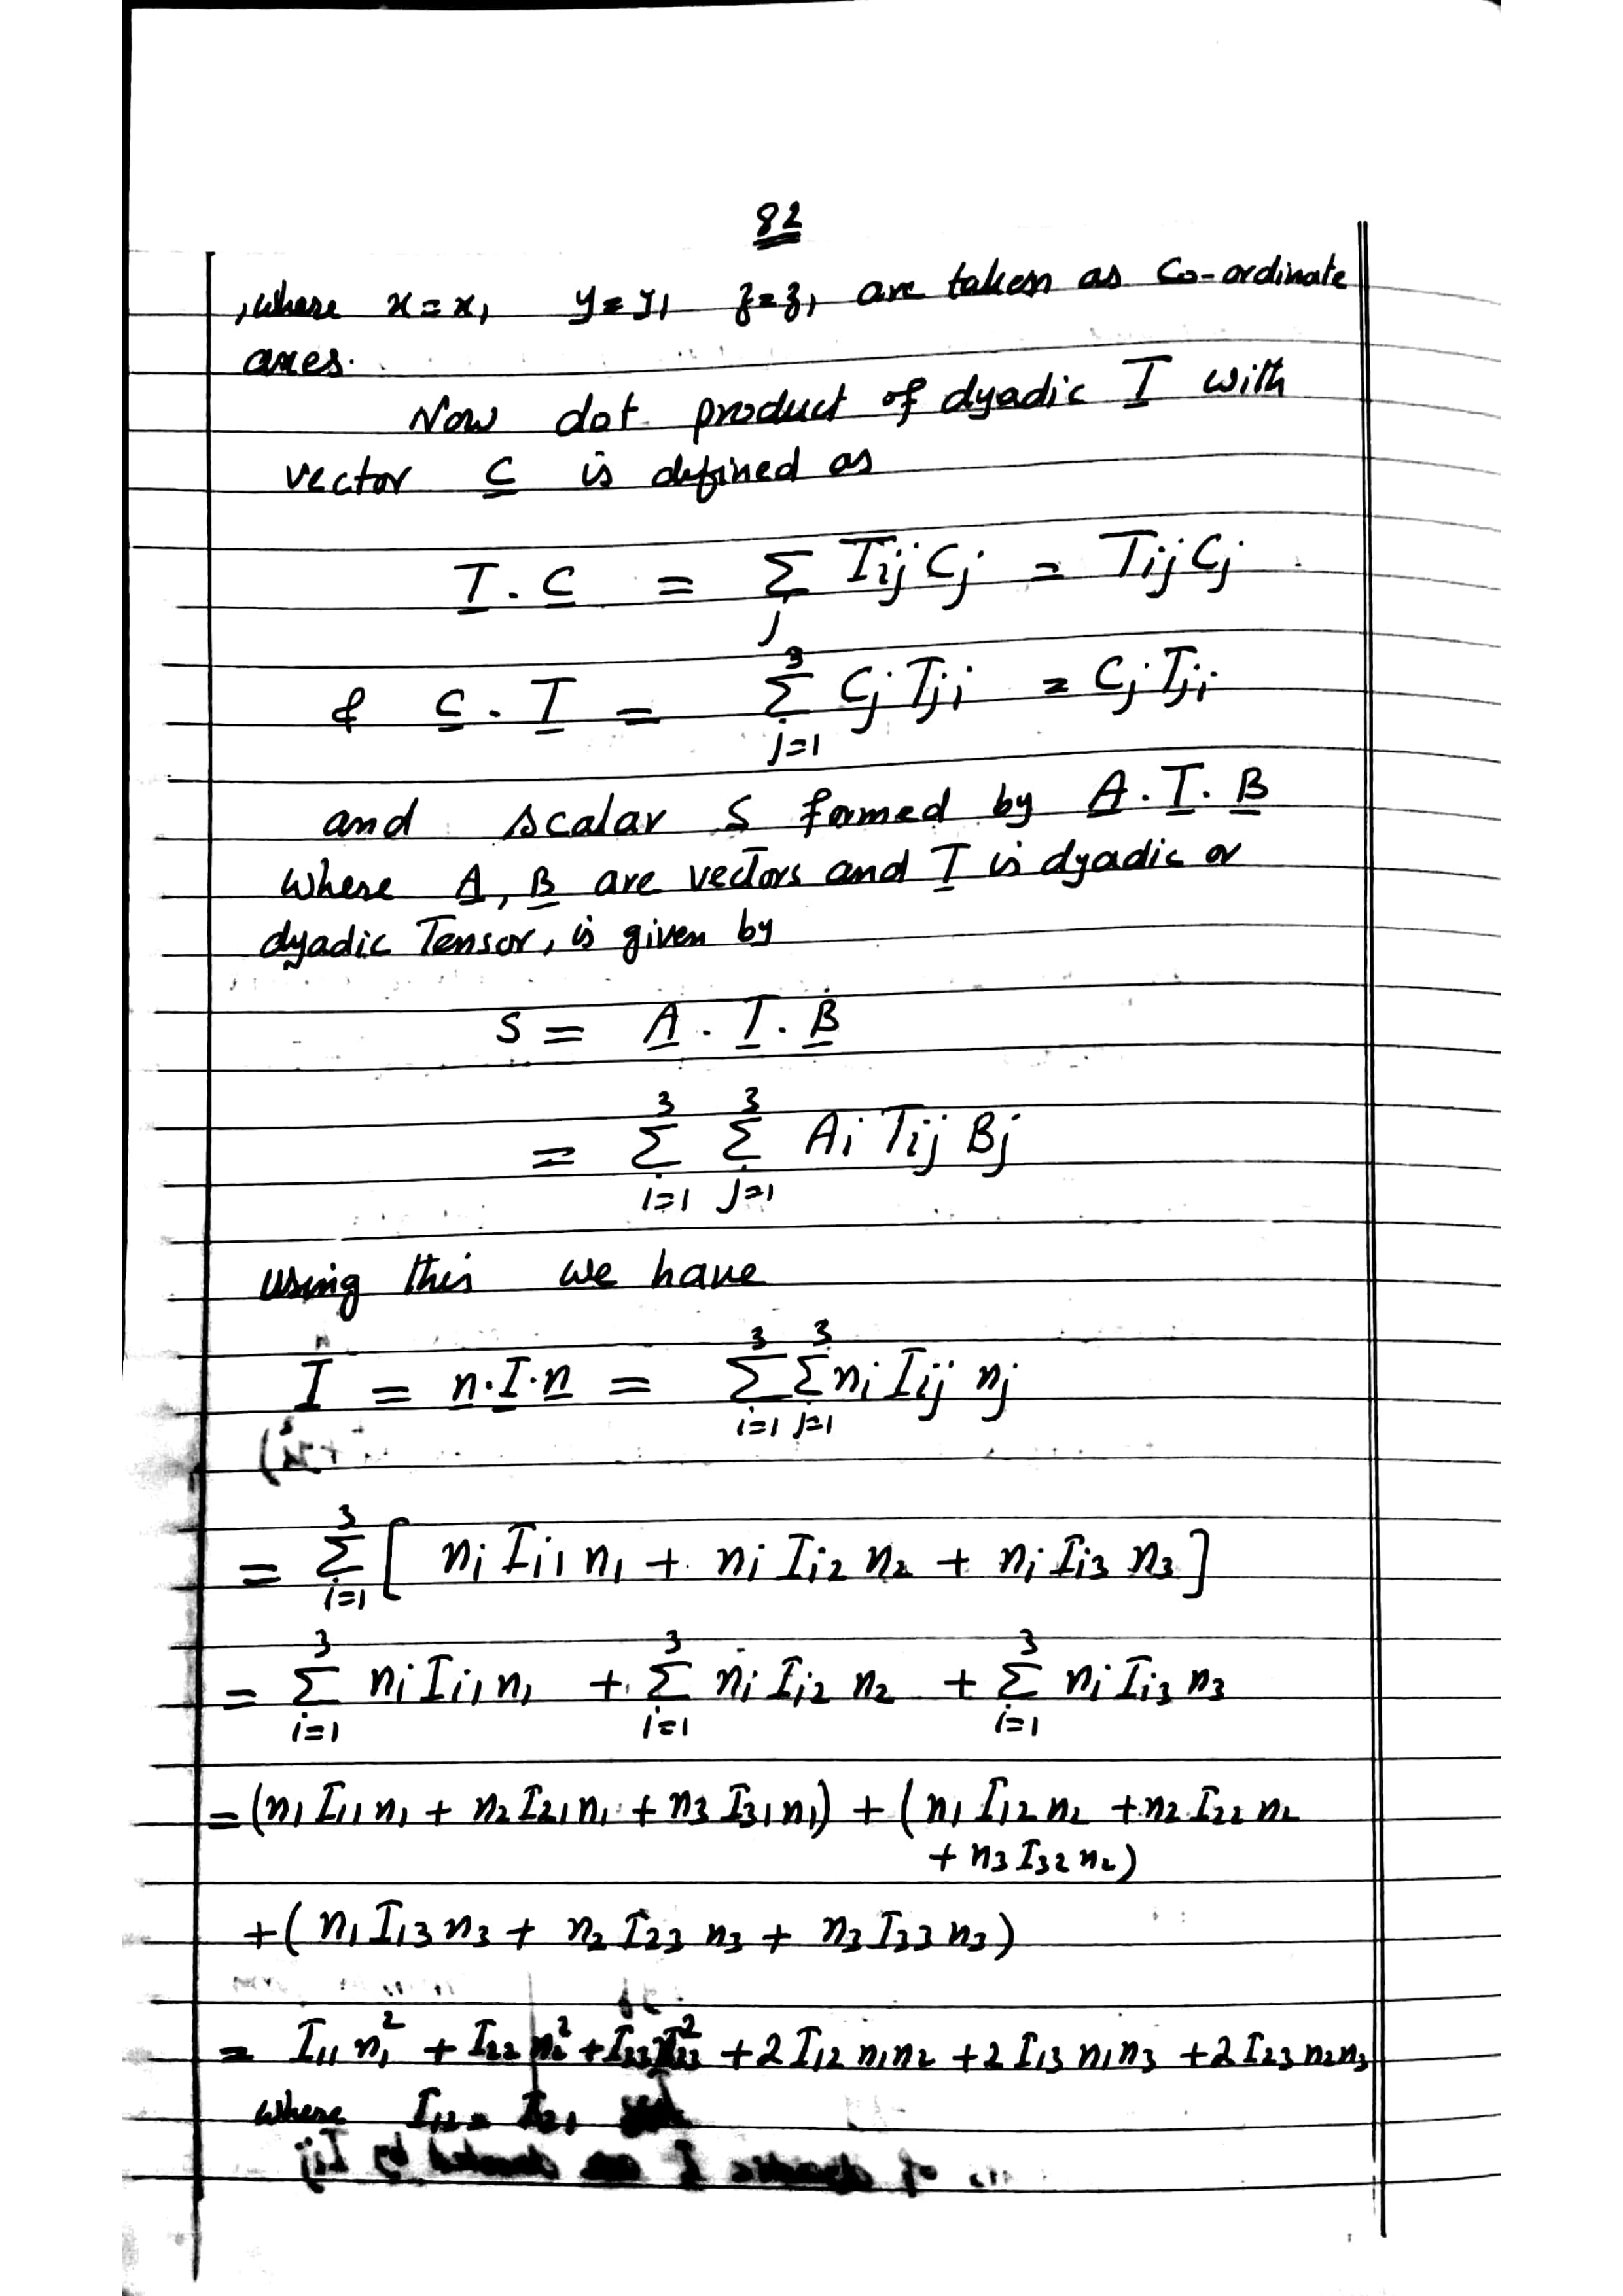 82
, where x = x₁ y = y₁ z = z₁ are taken as Co-ordinate
axes.
Now dot product of dyadic I with
vector C is defined as
T . C = Σ_j Tij Cj = Tij Cj
& C . T = Σ_{j=1}^{3} Cj Tji = Cj Tji
and scalar S formed by A . T . B
where A, B are vectors and T is dyadic or
dyadic Tensor, is given by
S = A . T . B
= Σ_{i=1}^{3} Σ_{j=1}^{3} Ai Tij Bj
using this we have
I = n . I . n = Σ_{i=1}^{3} Σ_{j=1}^{3} ni Iij nj
= Σ_{i=1}^{3} [ ni Ii1 n1 + ni Ii2 n2 + ni Ii3 n3 ]
= Σ_{i=1}^{3} ni Ii1 n1 + Σ_{i=1}^{3} ni Ii2 n2 + Σ_{i=1}^{3} ni Ii3 n3
= (n1 I11 n1 + n2 I21 n1 + n3 I31 n1) + (n1 I12 n2 + n2 I22 n2
+ n3 I32 n2)
+ (n1 I13 n3 + n2 I23 n3 + n3 I33 n3)
= I11 n1² + I22 n2² + I33 n3² + 2 I12 n1n2 + 2 I13 n1n3 + 2 I23 n2n3
where I12 = I21
of I by Iij